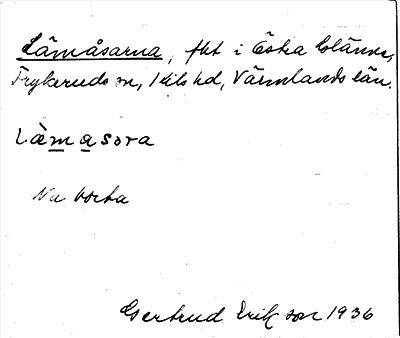 Lämåsarna, fht i Östra Glänne,
Frykeruds sn, Kils hd, Värmlands län.
Làmasora
Nu borta
Gertrud Erikson 1936